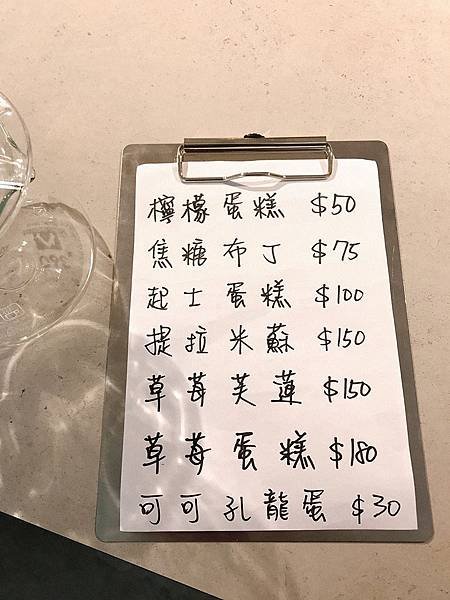 檸檬蛋糕 $50
焦糖布丁 $75
起士蛋糕 $100
提拉米蘇 $150
草莓芙蓮 $150
草莓蛋糕 $180
可可孔龍蛋 $30